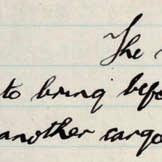 The
to bring befo
another cargo